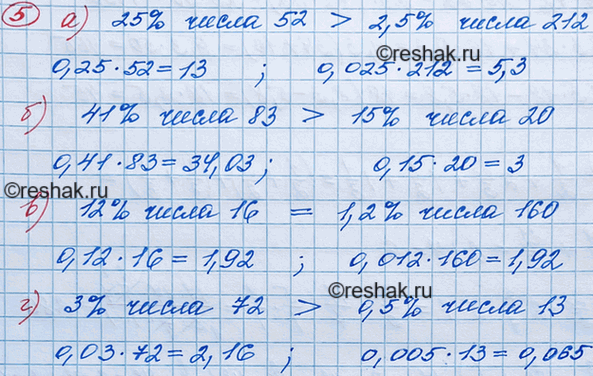 5 а) 25% числа 52 > 2,5% числа 212
©reshak.ru
0,25·52=13 ; 0,025·212=5,3
б) 41% числа 83 > 15% числа 20
0,41·83=34,03; 0,15·20=3
©reshak.ru
в) 12% числа 16 = 1,2% числа 160
0,12·16=1,92 ; 0,012·160=1,92
©reshak.ru
г) 3% числа 72 > 0,5% числа 13
0,03·72=2,16 ; 0,005·13=0,065